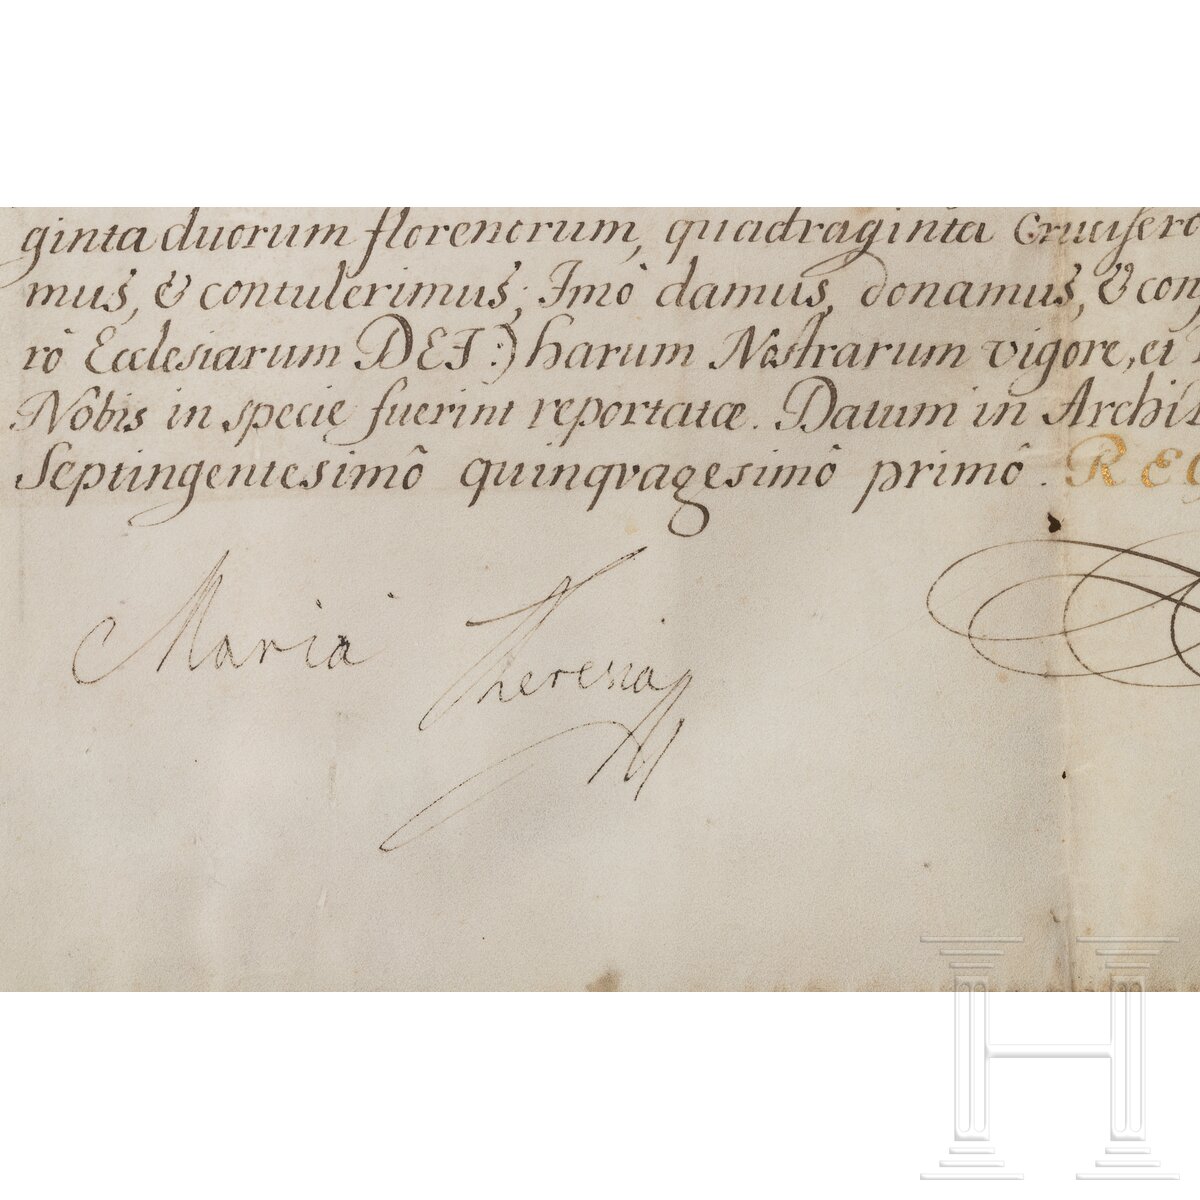 ginta duorum florenorum, quadraginta Crucifero
mus, & contulerimus; Imô damus, donamus, & con
rô Ecclesiarum DEI:) harum Nostrarum vigore, et
Nôbis in specie fuerint reportatæ. Datum in Archi
Septingentesimô quinqvagesimô primô. REG
Maria Theresia
H